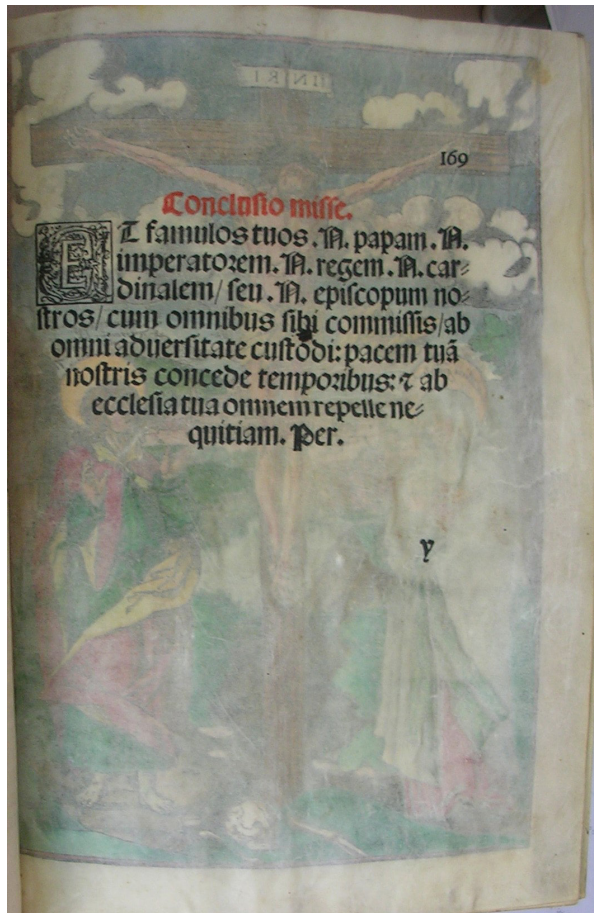 INRI
169
Conclusio misse.
ET famulos tuos .N. papam .N.
imperatorem .N. regem .N. car⸗
dinalem/ seu .N. episcopum no⸗
stros/ cum omnibus sibi commissis/ ab
omni aduersitate custodi: pacem tuā
nostris concede temporibus: ⁊ ab
ecclesia tua omnem repelle ne⸗
quitiam. Per.
y